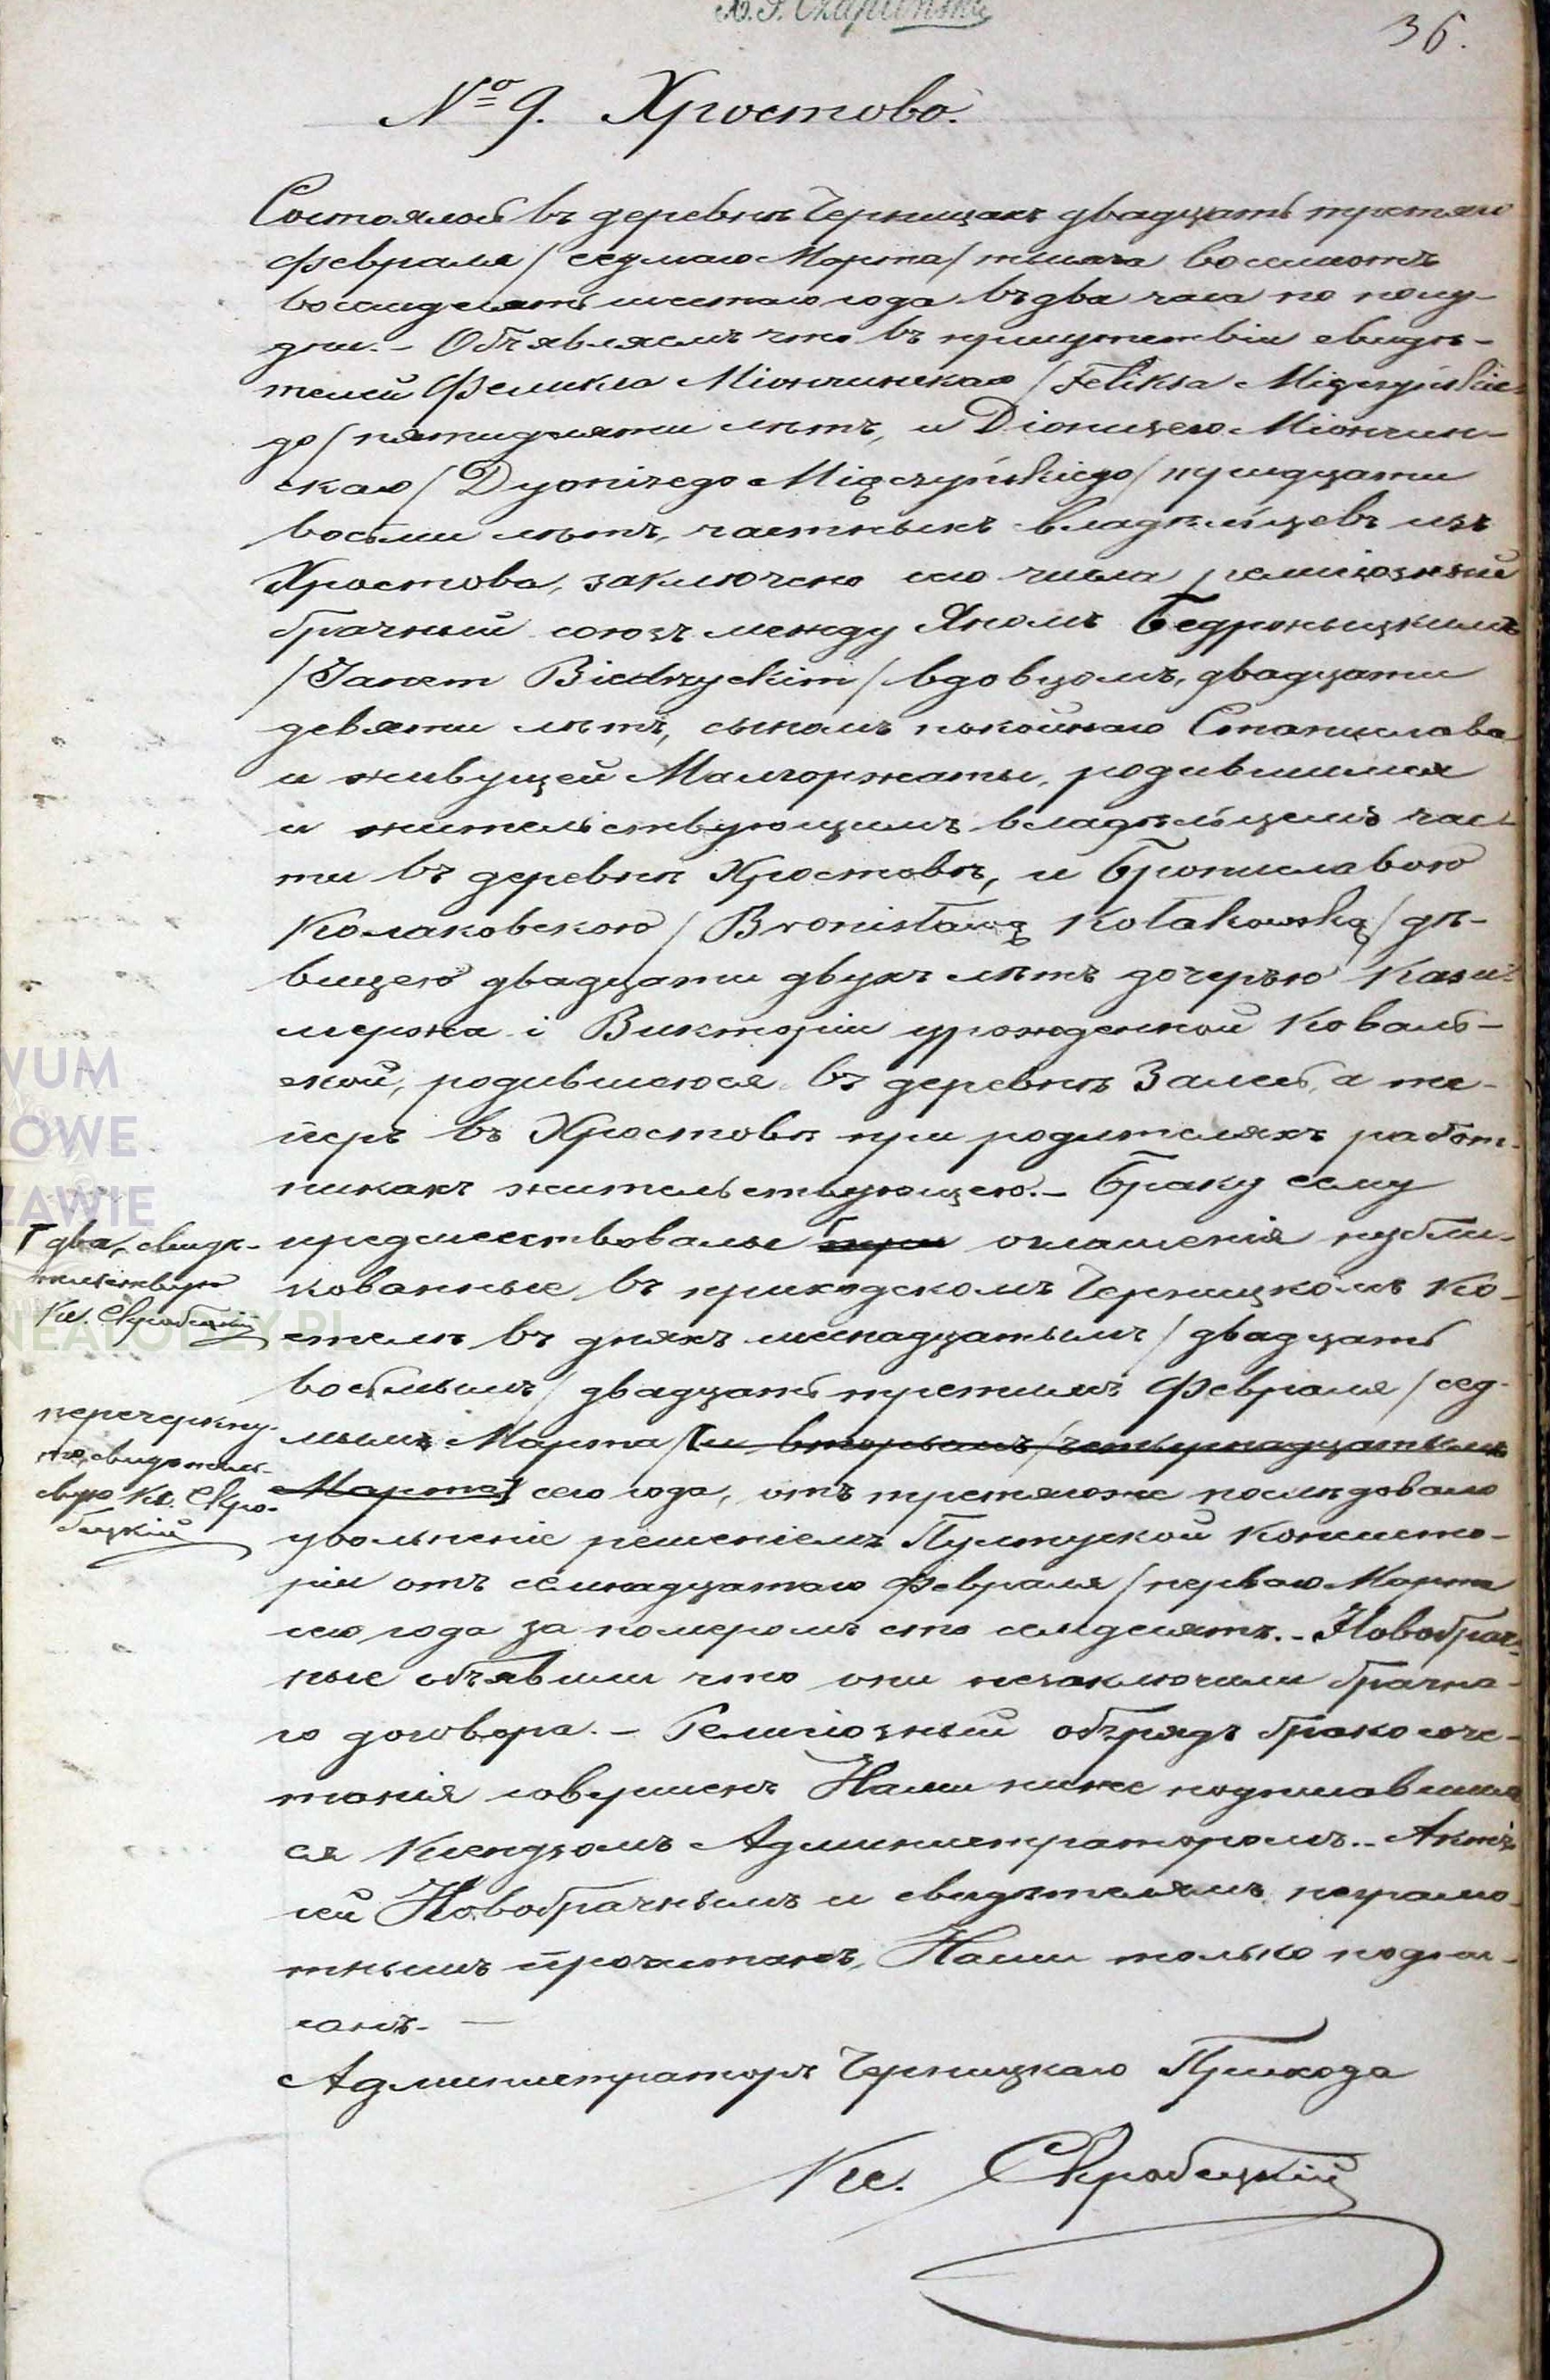 36.
№ 9. Хростово.
Состоялось въ деревнѣ Черницахъ двадцать третьяго
февраля / седмаго Марта / тысяча восемсотъ
восемдесятъ шестаго года въ два часа по полу-
дни. - Объявляемъ что въ присутствіи свидѣ-
телей Феликса Міончинскаго / Feliksa Miączyńskie-
go / пятидесяти лѣтъ, и Діонизего Міончин-
скаго / Dyonizego Miączyńskiego / тридцати
восьми лѣтъ, частныхъ владѣльцевъ изъ
Хростова, заключено сего числа религіозный
брачный союзъ между Яномъ Бедржыцкимъ
/ Janem Biedrzyckim / вдовцомъ, двадцати
девяти лѣтъ, сыномъ покойнаго Станислава
и живущей Малгоржаты, родившимся
и жительствующимъ владѣльцемъ час-
ти въ деревнѣ Хростовѣ, и Брониславою
Колаковскою / Bronisławą Kołakowską / дѣ-
вицею двадцати двухъ лѣтъ дочерью Кази-
мержа і Викторіи урожденной Коваль-
ской, родившеюся въ деревнѣ Залесь, а те-
перь въ Хростовѣ при родителяхъ работ-
никахъ жительствующею. - Браку сему
предшествовалы три оглашенія публи-
кованные въ приходскомъ Черницкомъ Ко-
стелѣ въ дняхъ шеснадцатымъ / двадцать
восьмымъ / двадцать третимъ Февраля / сед-
мымъ Марта / [и вторымъ / четырнадцатымъ
Марта] сего года, отъ третягоже послѣдовало
увольненіе решеніемъ Пултуской Консисто-
ріи отъ семнадцатаго Февраля / перваго Марта
сего года за номеромъ сто семдесятъ. - Новобрач-
ные объявили что они незаключили брачна-
го договора. - Религіозный обрядъ бракосоче-
танія совершенъ Нами ниже подписавшим
ся Ксендзомъ Администраторомъ. - Актъ
сей Новобрачнымъ и свидѣтелямъ неграмо-
тнымъ прочитанъ, Нами только подпи-
санъ. -
Администраторъ Черницкаго Прихода
Кс. Скробецкій
Г два, свидѣ-
тельствую
Кс. Скробецкій
перечеркну-
тое, свидѣтель-
ствую Кс. Скро-
бецкій